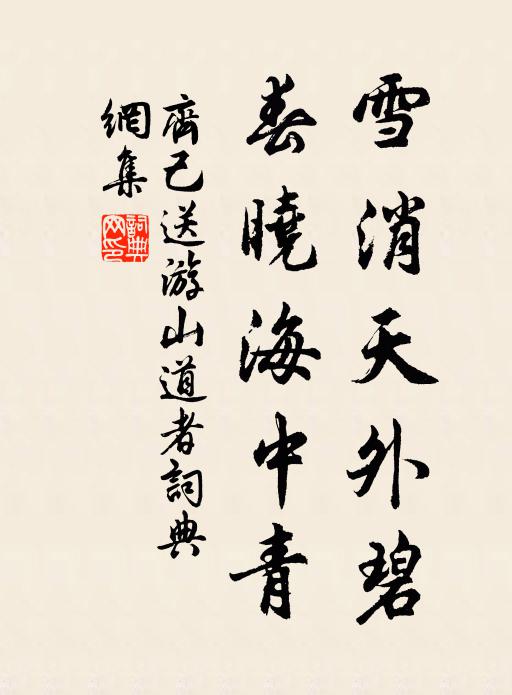 雪消天外碧
春曉海中青
齊己送游山道者詞典
網集
詞典
网印